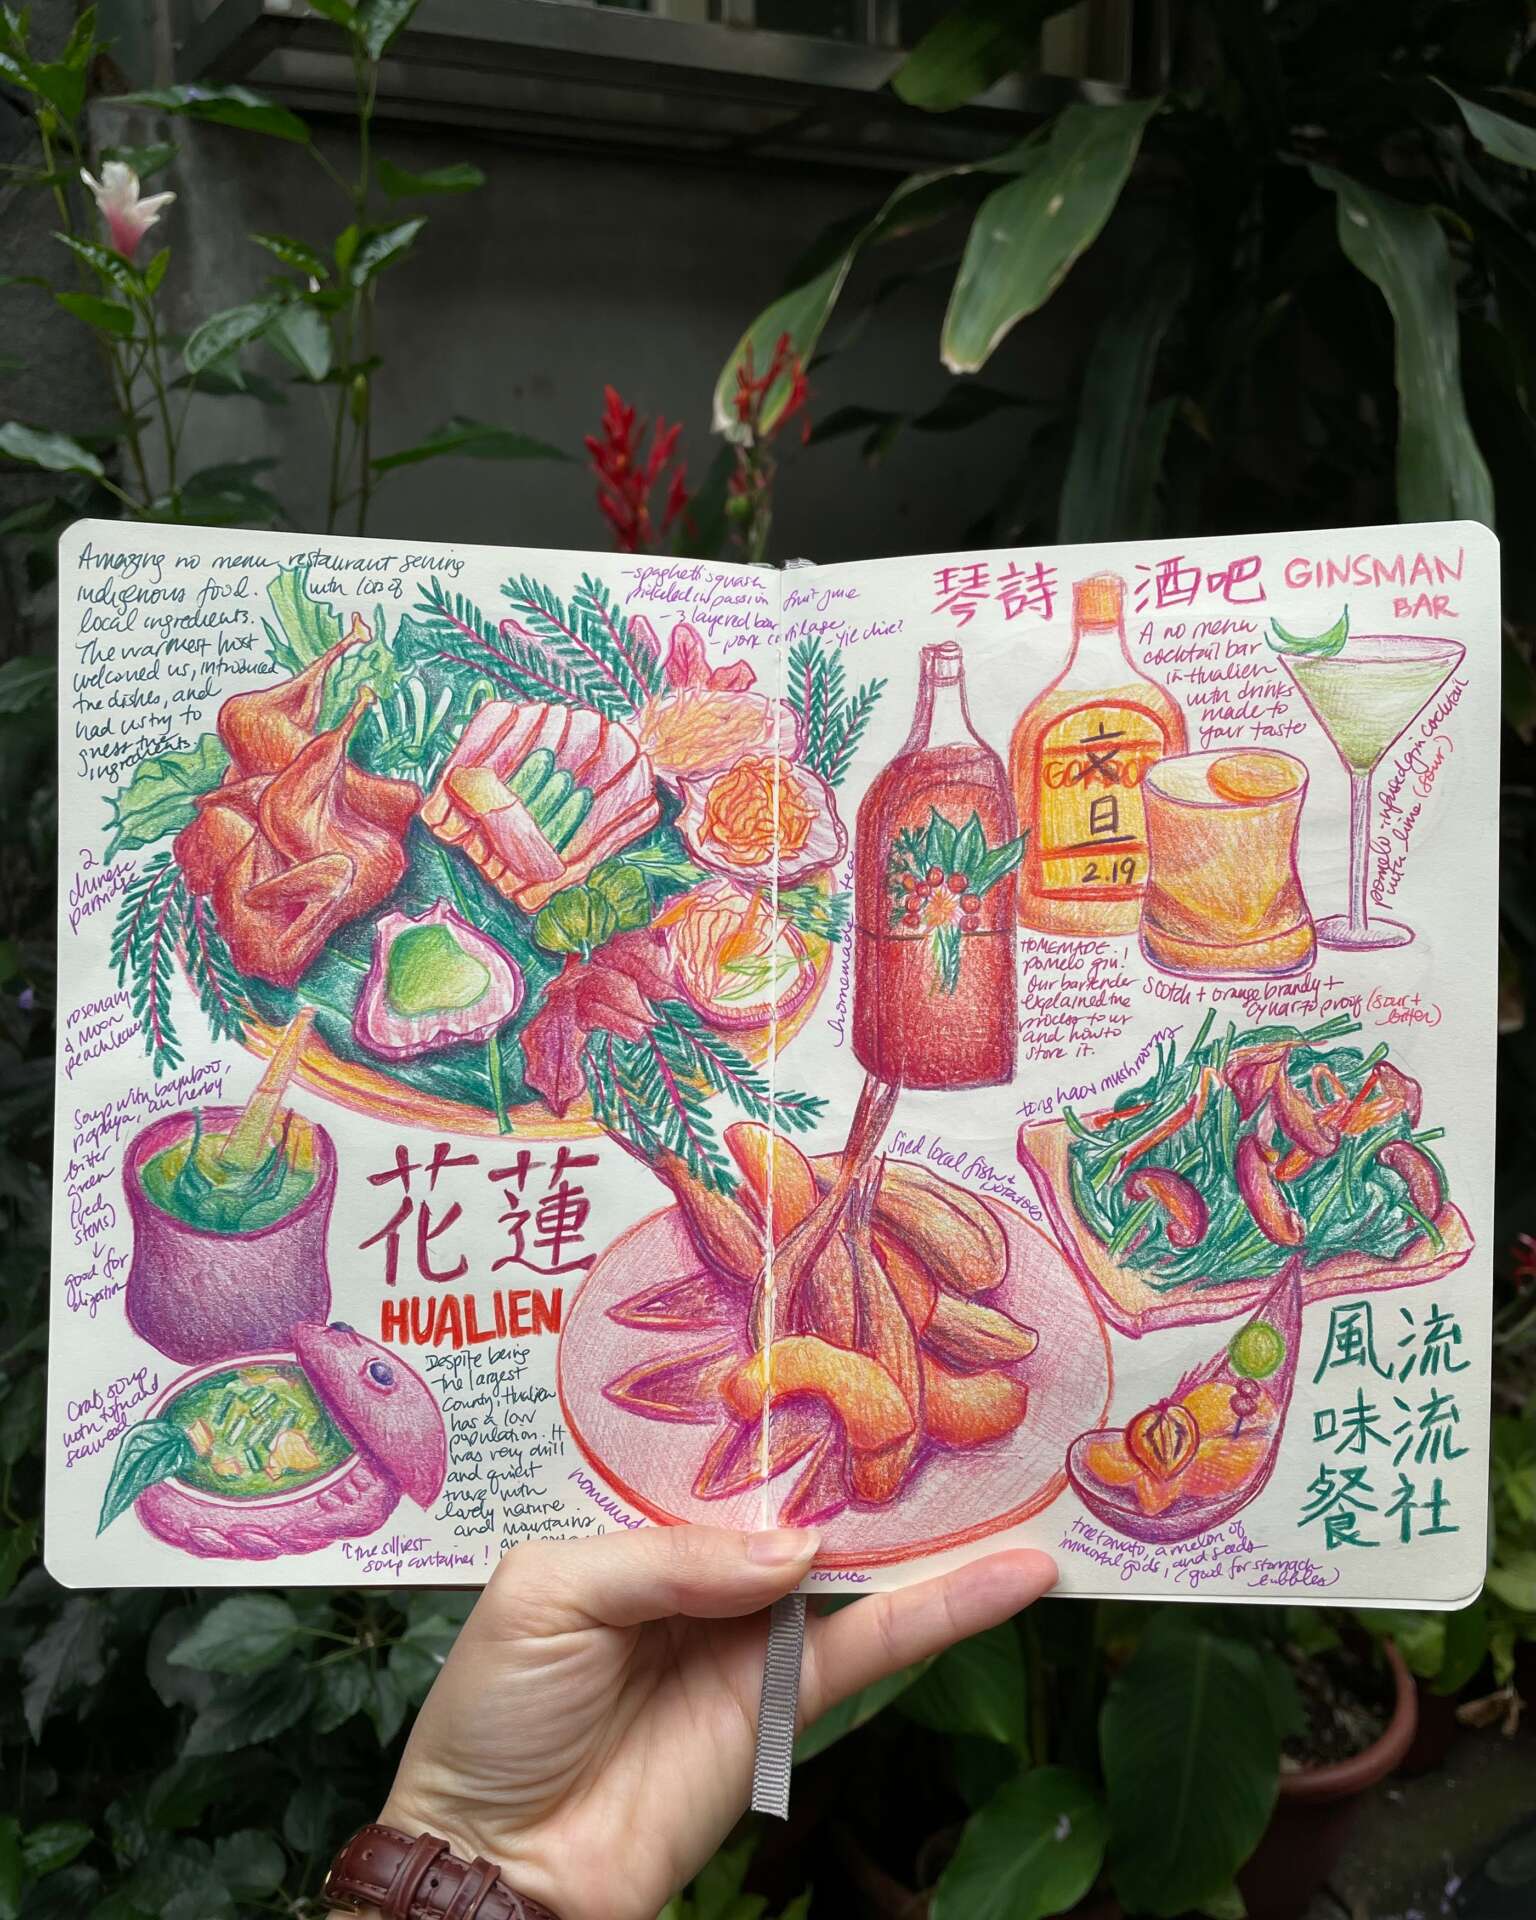 Amazing no menu restaurant serving
indigenous food. with lots of
local ingredients.
The warmest host
welcomed us, introduced
the dishes, and
had us try to
guess the
ingredients.
-spaghetti squash
pickled in passion fruit juice
- 3 layered
- pork cartilage
2
chinese
partridge
rosemary
& Moon
peach leaves
Soup with bamboo,
papaya, an herby
bitter
green
(red
stems)
↓
good for
digestion
花蓮
HUALIEN
Despite being
the largest
county, Hualien
has a low
population. It
was very chill
and quiet
there with
lovely nature
and mountains
Crab soup
with tofu and
seaweed
↑ the silliest
soup container!
琴詩 酒吧 GINSMAN
BAR
A no menu
cocktail bar
in Hualien
with drinks
made to
your taste
文
旦
2.19
pomelo-infused gin cocktail
with lime (sour)
homemade tea
HOMEMADE
pomelo gin!
Our bartender
explained the
process to us
and how to
store it.
scotch + orange brandy +
cynar 70 proof (sour +
bitter)
long haos mushrooms
fried local fish +
potatoes
homemade
sauce
流流社
風味餐
tree tomato, a melon of
immortal gods, and seeds
(good for stomach
bubbles)